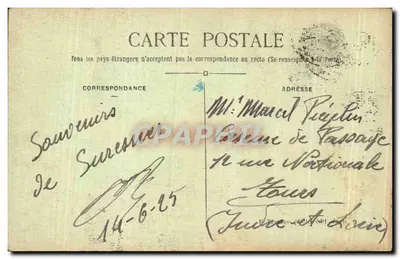 CARTE POSTALE
Tous les pays étrangers n'acceptent pas la correspondance au recto (Se renseigner à la Poste)
CORRESPONDANCE
ADRESSE
Souvenirs
de Suresnes
14-6-25
Mr Marcel
Caserne de Passage
12 rue Nationale
Tours
(Indre et Loire)
CPAPHIL